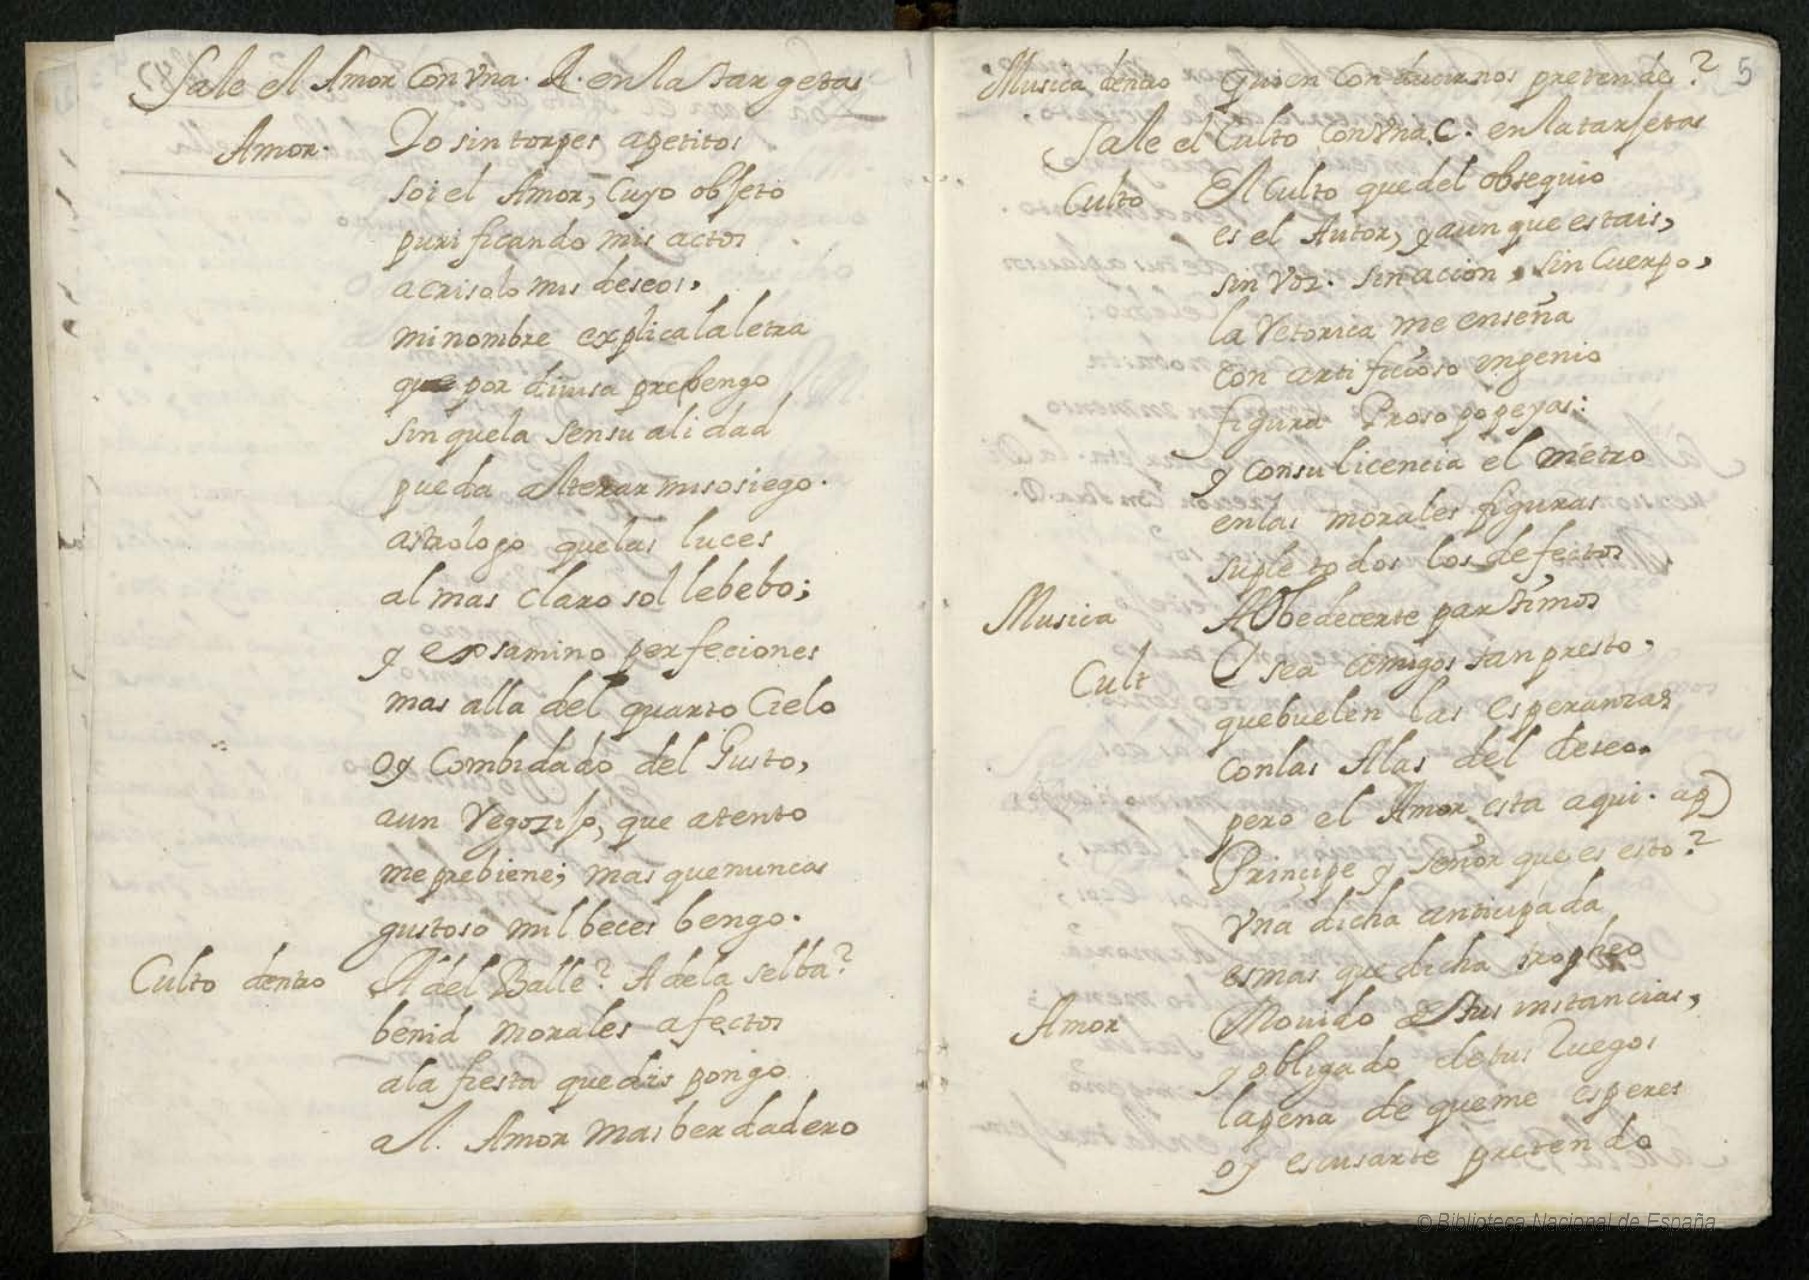 Sale el Amor Con vna. A. en la targetas
Amor. Yo sin torpes apetitos
soi el Amor, Cuyo objeto
purificando mis actos
acrisolo mis deseos,
mi nombre explica la letra
que por diuisa prebengo
sin que la sensualidad
pueda alterar mi sosiego.
astrologo que las luces
al mas claro sol le bebo;
y exsamino perfeciones
mas alla del quarto Cielo
oy Combidado del Gusto,
a un Regozijo, que atento
me prebiene; mas que nuncas
gustoso mil beces bengo.
Culto dentro A del Balle? A de la selba?
benid morales afectos
a la fiesta que dispongo
al. Amor mas berdadero
Musica dentro quien conducirnos pretende? 5
Sale el Culto con vna. C. en la tarjetas
Culto El Culto que del obsequio
es el Autor, y aunque estais,
sin voz. sin acion, sin Cuerpo,
la Retorica me enseña
con artificioso ingenio
figura Prosopopeyas:
y con su licencia el metro
en las morales figuras
suple todos los defectos
Musica A Obedecerte partimos
Cult O sea Amigos tan presto,
que buelen las esperanzas
con las Alas del deseo.
pero el Amor esta aqui. ap
Principe y señor que es esto?
vna dicha anticipada
es mas que dicha tropheo
Amor Mouido a tus instancias,
y obligado de tus Ruegos
la pena de que me esperes
oy escusarte pretendo
© Biblioteca Nacional de España